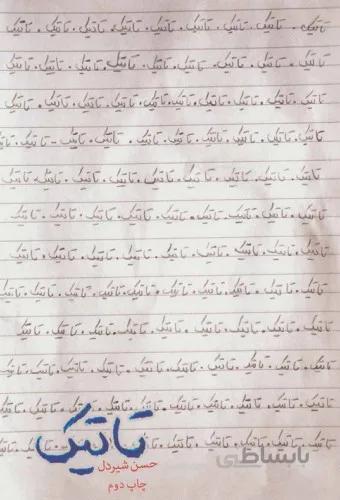 تاتیک . تاتیک . تاتیک . تاتیک . تاتیک . تاتیک . تاتیک . تاتیک . تاتیک
تاتیک . تاتیک . تاتیک . تاتیک . تاتیک . تاتیک . تاتیک . تاتیک . تاتیک
تاتیک . تاتیک . تاتیک . تاتیک . تاتیک . تاتیک . تاتیک . تاتیک . تاتیک . تاتیک
تاتیک . تاتیک . تاتیک . تاتیک . تاتیک . تاتیک . تاتیک . تاتیک - تاتیک . تاتیک
تاتیک . تاتیک . تاتیک . تاتیک . تاتیک . تاتیک . تاتیک . تاتیک . تاتیک . تاتیک
تاتیک . تاتیک . تاتیک . تاتیک . تاتیک . تاتیک . تاتیک . تاتیک . تاتیک
تاتیک . تاتیک . تاتیک . تاتیک . تاتیک . تاتیک . تاتیک . تاتیک . تاتیک
تاتیک . تاتیک . تاتیک . تاتیک . تاتیک . تاتیک . تاتیک . تاتیک . تاتیک . تاتیک
تاتیک . تاتیک . تاتیک . تاتیک . تاتیک . تاتیک . تاتیک . تاتیک . تاتیک
تاتیک . تاتیک . تاتیک . تاتیک . تاتیک . تاتیک . تاتیک . تاتیک . تاتیک . تاتیک
تاتیک . تاتیک . تاتیک . تاتیک . تاتیک . تاتیک . تاتیک . تاتیک . تاتیک
تاتیک . تاتیک . تاتیک . تاتیک . تاتیک
تاتیک
حسن شیردل
چاپ دوم